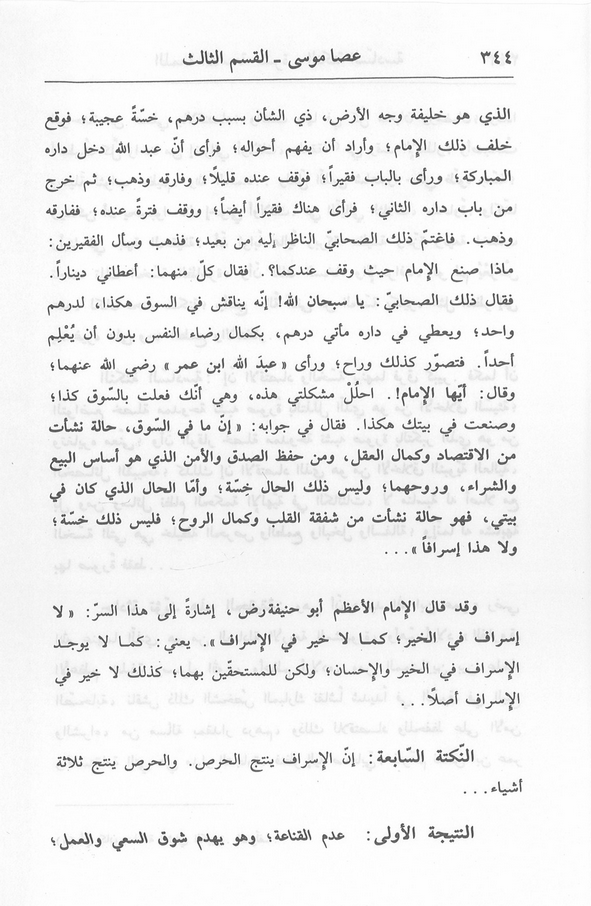 ٣٤٤ عصا موسى - القسم الثالث
الذي هو خليفة وجه الأرض، ذي الشأن بسبب درهم، خسّةً عجيبة؛ فوقع
خلف ذلك الإمام؛ وأراد أن يفهم أحواله؛ فرأى أنّ عبد الله دخل داره
المباركة؛ ورأى بالباب فقيراً؛ فوقف عنده قليلًا؛ وفارقه وذهب؛ ثم خرج
من باب داره الثاني؛ فرأى هناك فقيراً أيضاً؛ ووقف فترةً عنده؛ ففارقه
وذهب. فاغتمّ ذلك الصحابيّ الناظر إليه من بعيد؛ فذهب وسأل الفقيرين:
ماذا صنع الإمام حيث وقف عندكما؟. فقال كلّ منهما: أعطاني ديناراً.
فقال ذلك الصحابيّ: يا سبحان الله! إنّه يناقش في السوق هكذا، لدرهم
واحد؛ ويعطي في داره مأتي درهم، بكمال رضاء النفس بدون أن يُعْلِم
أحداً. فتصوّر كذلك وراح؛ ورأى «عبدَ الله ابن عمر» رضي الله عنهما؛
وقال: أيّها الإمام!. احلُلْ مشكلتي هذه، وهي أنّك فعلت بالسّوق كذا؛
وصنعت في بيتك هكذا. فقال في جوابه: «إنّ ما في السّوق، حالة نشأت
من الاقتصاد وكمال العقل، ومن حفظ الصدق والأمن الذي هو أساس البيع
والشراء، وروحهما؛ وليس ذلك الحال خسّة؛ وأمّا الحال الذي كان في
بيتي، فهو حالة نشأت من شفقة القلب وكمال الروح؛ فليس ذلك خسّة؛
ولا هذا إسرافاً»...
وقد قال الإمام الأعظم أبو حنيفة رض، إشارةً إلى هذا السرّ: «لا
إسراف في الخير؛ كما لا خير في الإسراف». يعني: كما لا يوجد
الإسراف في الخير والإحسان؛ ولكن للمستحقّين بهما؛ كذلك لا خير في
الإسراف أصلًا...
النّكتة السّابعة: إنّ الإسراف ينتج الحرص. والحرص ينتج ثلاثة
أشياء...
النتيجة الأولى: عدم القناعة؛ وهو يهدم شوق السعي والعمل؛